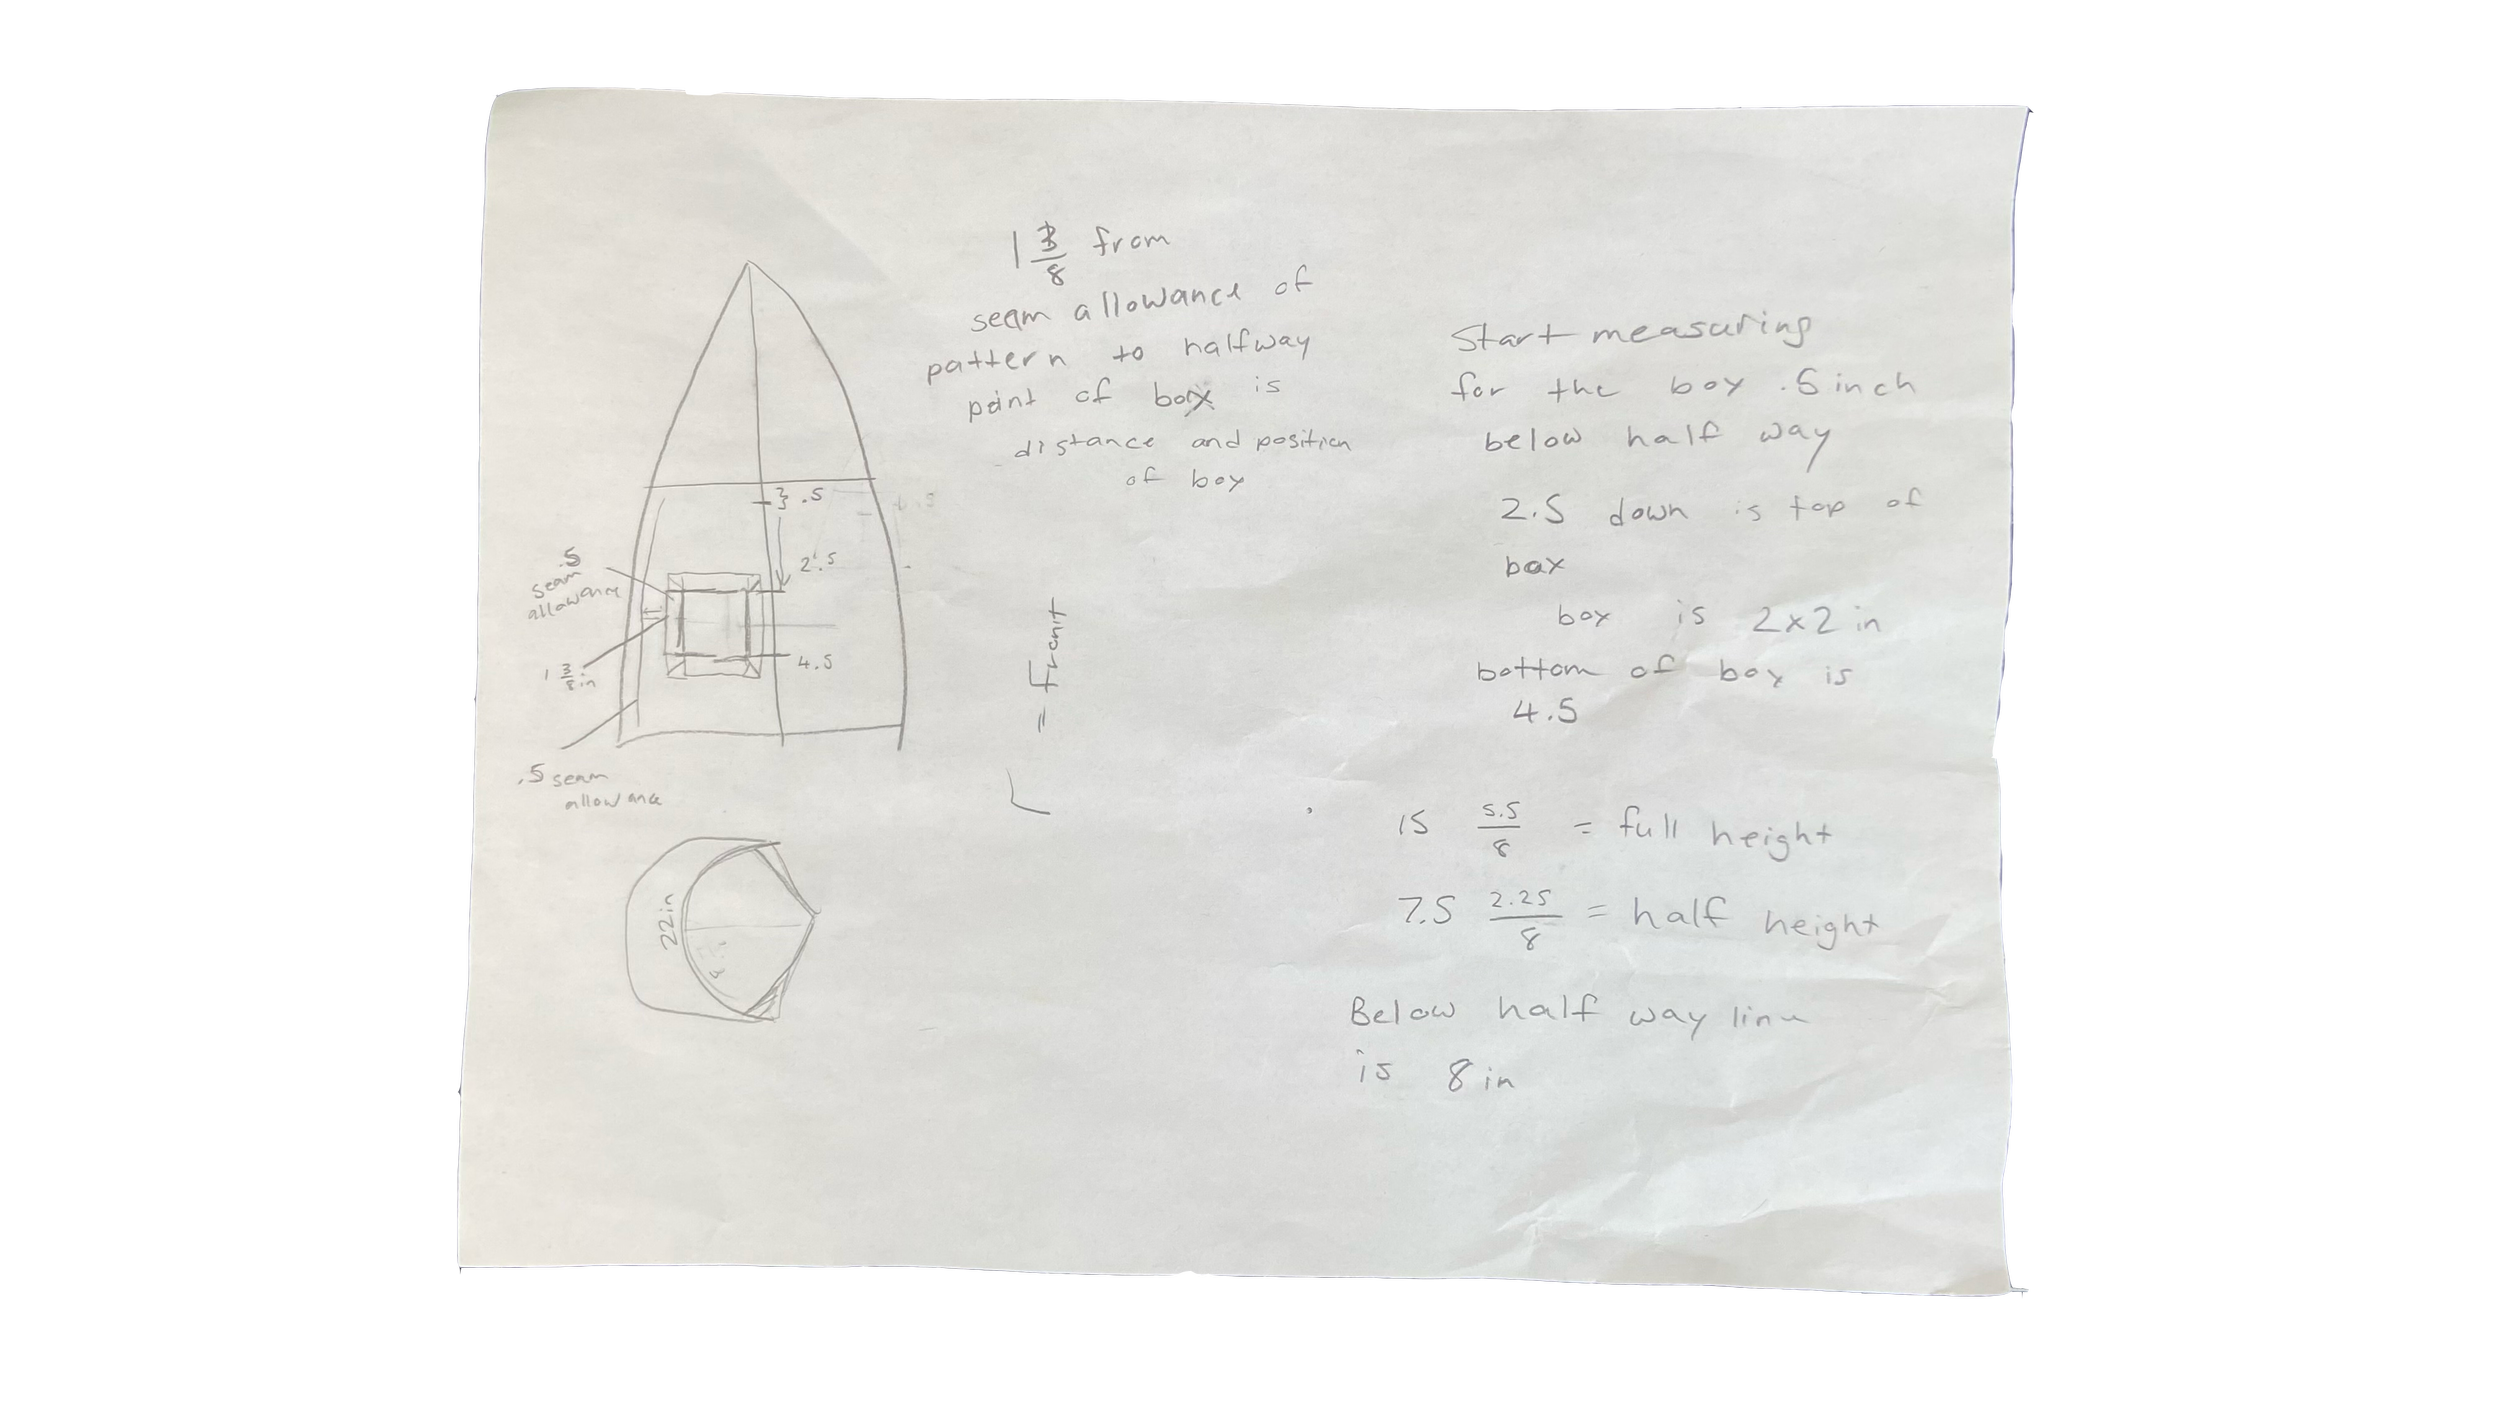 1 3/8 from
seam allowance of
pattern to halfway
point of box is
distance and position
of box
} .5
2.5
4.5
.5
seam
allowance
1 3/8 in
.5 seam
allowance
22in
= front
Start measuring
for the box .5 inch
below half way
2.5 down is top of
box
box is 2x2 in
bottom of box is
4.5
15 5.5/8 = full height
7.5 2.25/8 = half height
Below half way line
is 8 in